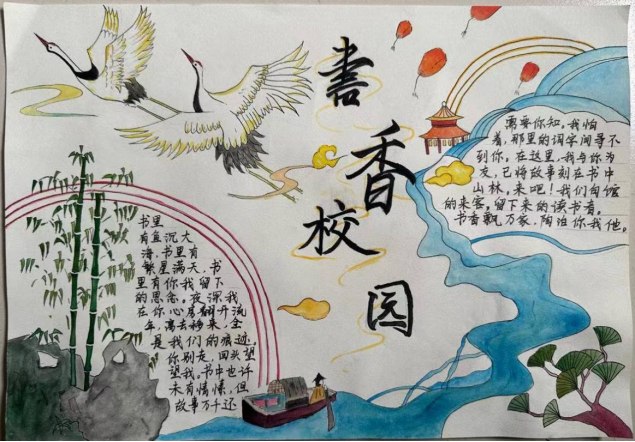 書
香
校
园
需要你知,我怕
着,那里的词字间寻不
到你。在这里,我与你为
友,已将故事刻在书中
山林,来吧!我们匆匆
的来客,留下来的读书者。
书香飘万家,陶冶你我他。
书里
有鱼沉大
海,书里有
繁星满天,书
里有你我留下
的思念。夜深我
在你心房翻开流
年,离去秘来,全
是我们的痕迹。
你别走,回头望
望我。书中也许
未有情愫,但
故事万千还